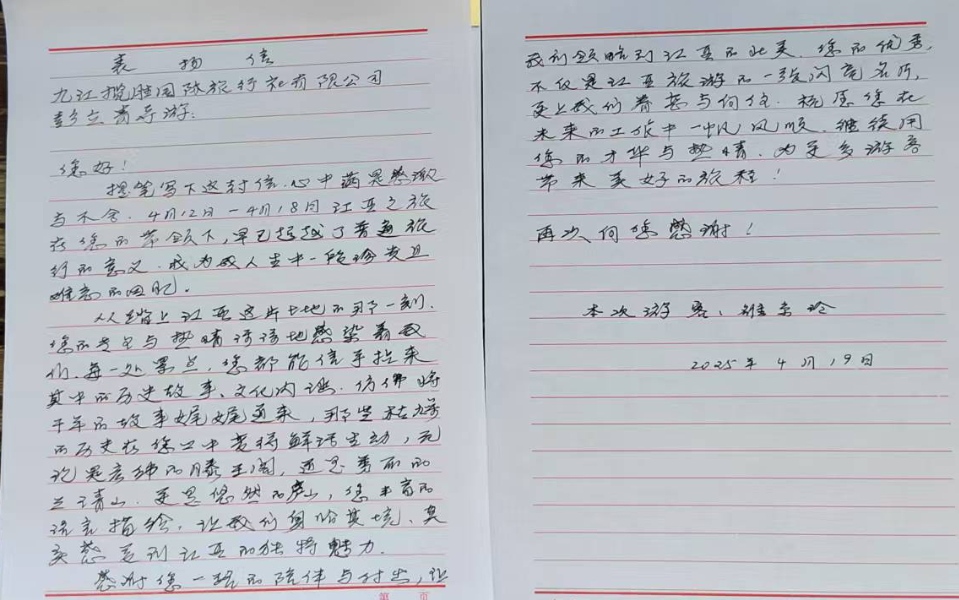 表扬信
九江揽胜国际旅行社有限公司
彭立青导游：
您好！
提笔写下这封信，心中满是感激
与不舍。4月12日－4月18日江西之旅
在您的带领下，早已超越了普通旅
行的意义，成为我人生中一段珍贵且
难忘的回忆。
从踏上江西这片土地的那一刻，
您的专业与热情深深地感染着我
们，每一处景点，您都能信手拈来
其中的历史故事、文化内涵，仿佛将
千年的故事娓娓道来，那些枯燥
的历史在您口中变得鲜活生动，无
论是宏伟的滕王阁，还是秀丽的
三清山，更是悠然的庐山，您丰富的
语言描绘，让我们身临其境、真
实感受到江西的独特魅力．
感谢您一路的陪伴与付出，让
第 页
我们领略到江西的壮美，您的优秀，
不仅是江西旅游的一张闪亮名片，
更让我们着甚与向往．祝愿您在
未来的工作中一帆风顺，继续用
您的才华与热情，为更多游客
带来美好的旅程！
再次向您感谢！
本次游客：
2025年4月19日